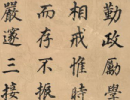 勤政勵學
相戒惟時
而存不振
嚴邃三接